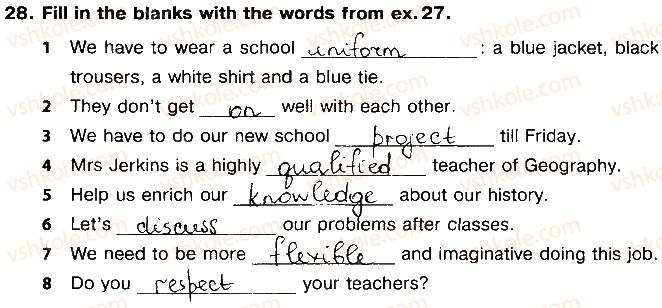 28. Fill in the blanks with the words from ex. 27.
1 We have to wear a school uniform : a blue jacket, black
trousers, a white shirt and a blue tie.
2 They don't get on well with each other.
3 We have to do our new school project till Friday.
4 Mrs Jerkins is a highly qualified teacher of Geography.
5 Help us enrich our knowledge about our history.
6 Let's discuss our problems after classes.
7 We need to be more flexible and imaginative doing this job.
8 Do you respect your teachers?